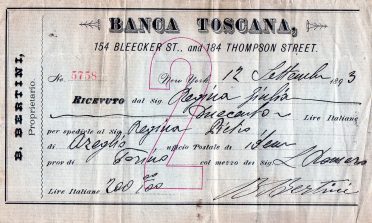 BANCA TOSCANA,
154 BLEECKER ST., and 184 THOMPSON STREET.
B. BERTINI,
Proprietario.
2
No. 5758 New York, 12 Settembre 1893
RICEVUTO dal Sig. Regina Giulia
Duecento Lire Italiane
per spedirle al Sig. Regina Pietro
di Areglio ufficio Postale di Idem
prov di Torino col mezzo del Sig. L Romero
Lire Italiane 200
B Bertini